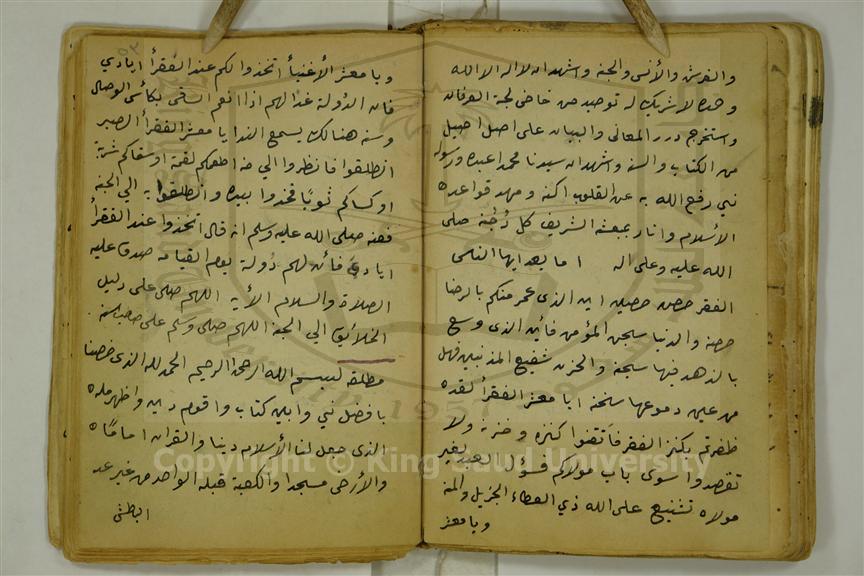 والفرش والأنس والجنة واشهد ان لا اله الا الله
وحده لا شريك له توحيد من خاض لجة العرفان
واستخرج درر المعاني والبيان على اصل اصيل
من الكتاب والسنة واشهد ان سيدنا محمدا عبده ورسوله
نبي رفع الله به عن القلوب اكنة ومهد قواعد
الأسلام وانار بمبعثه الشريف كل دُجُنة صلى
الله عليه وعلى اله اما بعد ايها الناس
الفقر حصن حصين اين الذي عمر منكم بالرضا
حصنه والدنيا سجن المؤمن فأين الذي وسع
بالزهد فيها سجنه والحزن شفيع المذنبين فهل
من عين دموعها سخنة ايا معشر الفقرأ لقد
ظفرتم بكنز الفقر فأتقنوا كنزه وخزنه ولا
تقصدوا سوى باب مولاكم فسؤال العبد لغير
مولاه تشنيع على الله ذي العطاء الجزيل والمنة
ويا معشر
٥٣
ويا معشر الأغنيأ اتخذوا لكم عند الفقرأ ايادي
فان الدُولة غدا لهم اذا انعم الساقي بكأس الوصال
ومنه هنالك يسمع الندا يا معشر الفقرأ الصبر
انطلقوا فانظروا الي من اطعمكم لقمة او سقاكم شربة
او كساكم ثوبًا فخذوا بيده وانطلقوا به الي الجنة
فعنه صلى الله عليه وسلم انه قال اتخذوا عند الفقرأ
ايادي فأن لهم دُولة يوم القيامة صدق عليه
الصلاة والسلام الأية اللهم صلى على دليل
الخلائق الي الجنة اللهم صلى وسلم على صاحب
مطلقة لبسم الله الرحمن الرحيم الحمد لله الذي خصنا
بافضل نبي وابين كتاب واقوم دين واظهر ملة
الذي جعل لنا الأسلام دينا والقران اماما
والأرض مسجدا والكعبة قبلة الواحد من غير عد
البطش
Copyright © King Saud University
1957